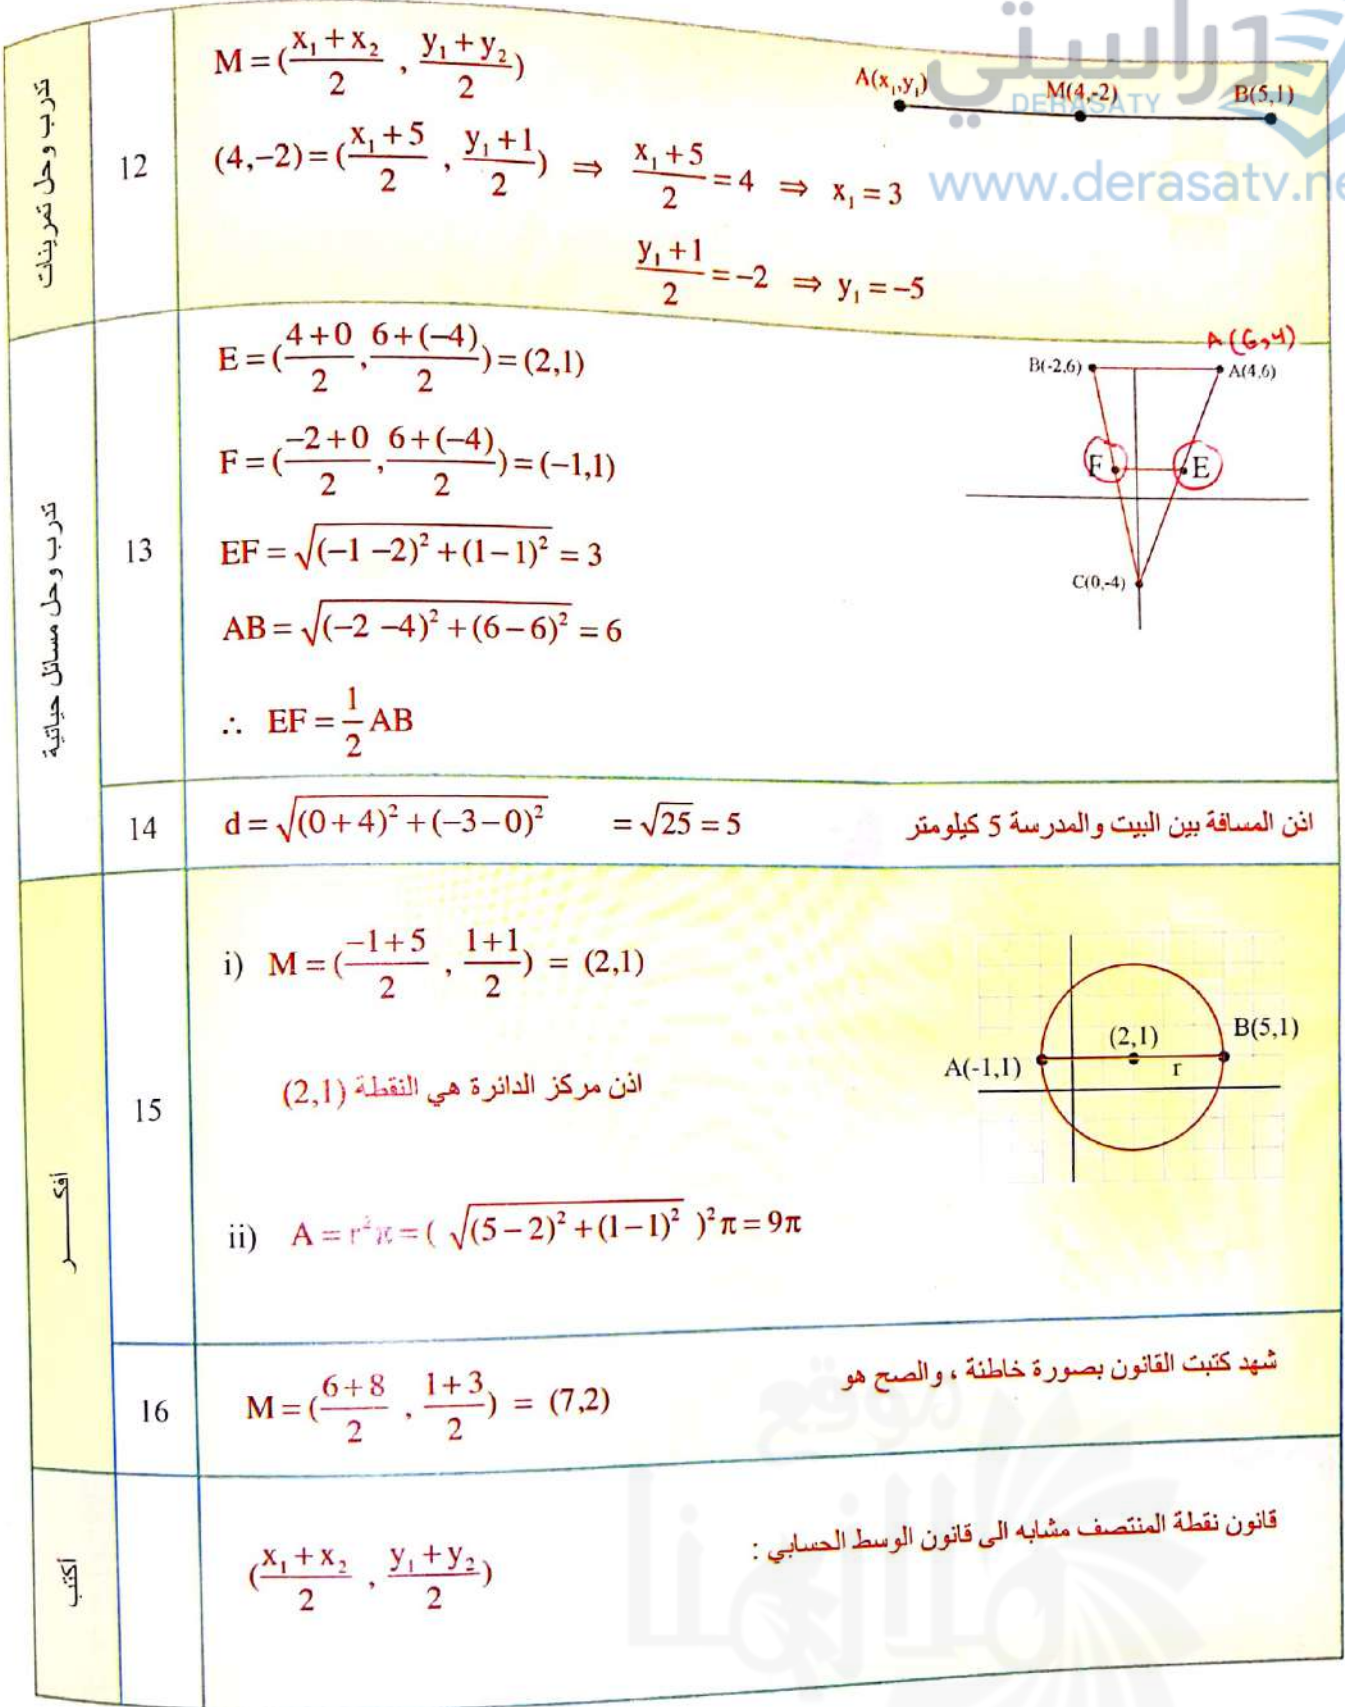 دراستي
DERASATY
www.derasaty.ne
تدرب وحل تمرينات
12
M = (\frac{x₁ + x₂}{2} , \frac{y₁ + y₂}{2})
A(x₁,y₁) M(4,-2) B(5,1)
(4,−2) = (\frac{x₁ + 5}{2} , \frac{y₁ + 1}{2}) ⇒ \frac{x₁ + 5}{2} = 4 ⇒ x₁ = 3
\frac{y₁ + 1}{2} = −2 ⇒ y₁ = −5
تدرب وحل مسائل حياتية
13
E = (\frac{4 + 0}{2} , \frac{6 + (−4)}{2}) = (2,1)
F = (\frac{−2 + 0}{2} , \frac{6 + (−4)}{2}) = (−1,1)
EF = √((−1 −2)² + (1−1)²) = 3
AB = √((−2 −4)² + (6−6)²) = 6
∴ EF = \frac{1}{2} AB
A (6,4)
B(-2,6) A(4,6)
F E
C(0,-4)
14
d = √((0+4)² + (−3−0)²) = √25 = 5
اذن المسافة بين البيت والمدرسة 5 كيلومتر
أفكر
15
i) M = (\frac{−1+5}{2} , \frac{1+1}{2}) = (2,1)
اذن مركز الدائرة هي النقطة (2,1)
ii) A = r²π = ( √((5−2)² + (1−1)²) )²π = 9π
(2,1) B(5,1)
A(-1,1) r
16
شهد كتبت القانون بصورة خاطئة ، والصح هو
M = (\frac{6+8}{2} , \frac{1+3}{2}) = (7,2)
أكتب
قانون نقطة المنتصف مشابه الى قانون الوسط الحسابي :
(\frac{x₁ + x₂}{2} , \frac{y₁ + y₂}{2})
موقع
ملازمنا